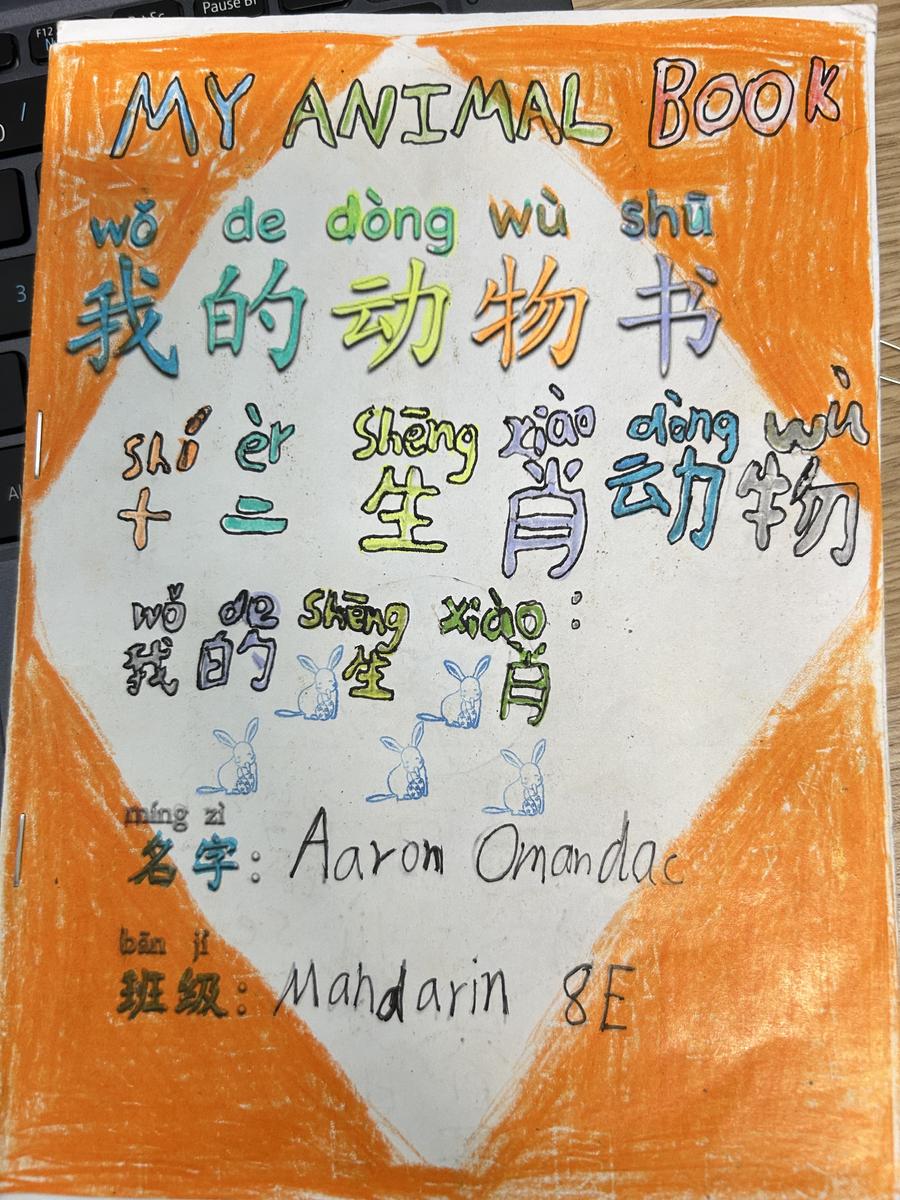 MY ANIMAL BOOK
wǒ de dòng wù shū
我的动物书
shí èr shēng xiào dòng wù
十二生肖动物
wǒ de shēng xiào :
我的生肖
míng zì
名字: Aaron Omandac
bān jí
班级: Mandarin 8E
Pause
F12
3